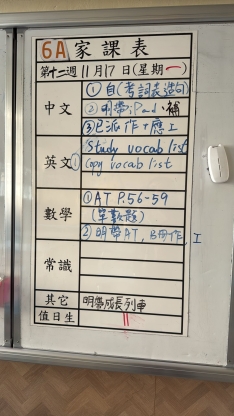 6A 家課表
第十二週 11月17日(星期一)
中文
① 自(考詞表造句)
② 明帶iPad、補
③ 已派作+應工
英文
Study vocab list
① Copy vocab list
數學
① AT P.56-59
(單數題)
② 明帶AT,
常識
其它
明帶成長列車
值日生
11